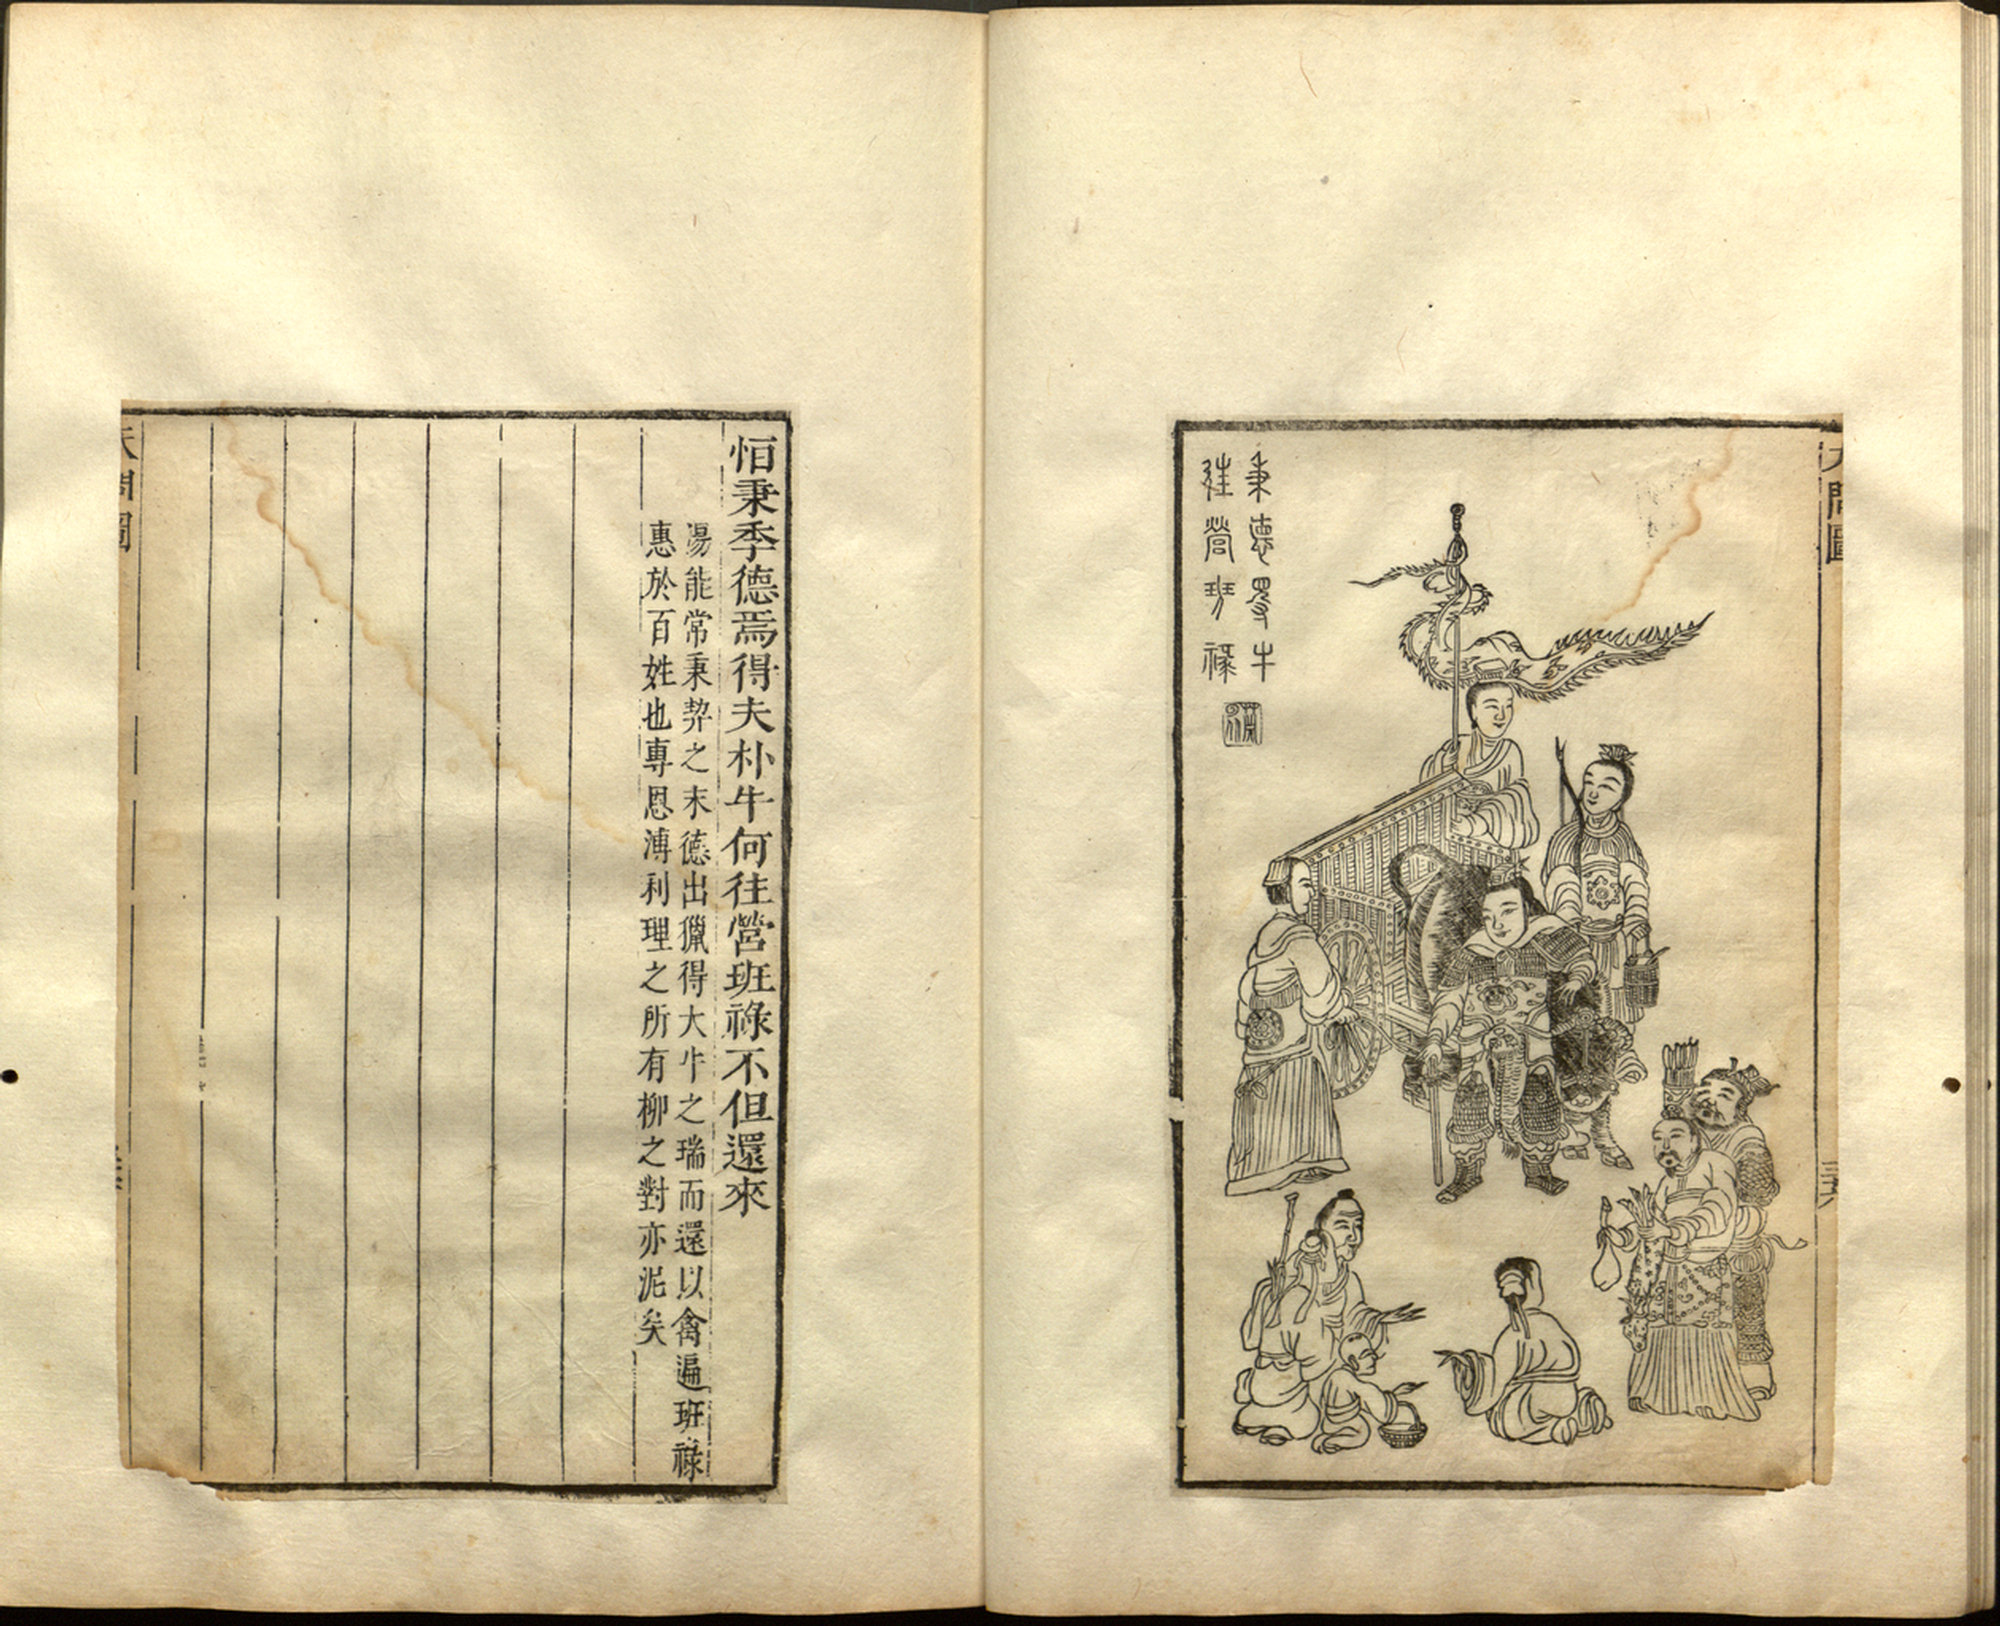 天問圖
秉悳㝵牛
往營班祿
恒秉季德焉得夫朴牛何往營班祿不但還來
湯能常秉契之末德出獵得大牛之瑞而還以禽遍班祿
惠於百姓也專恩溥利理之所有柳之對亦泥矣
天問圖